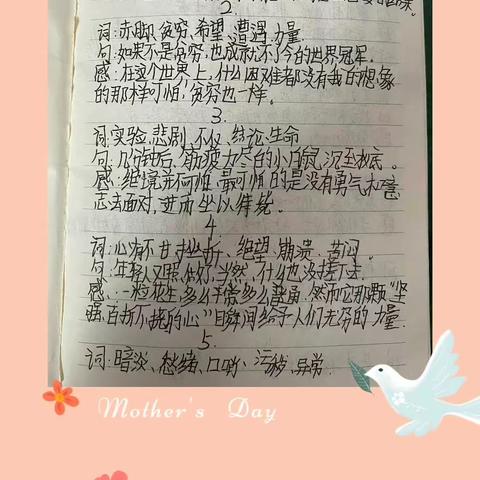 2
词:赤脚、贫穷、希望、遭遇、力量
句:如果不是贫穷,也成就不了今的世界冠军。
感:在这个世界上,什么困难都没有我的想象
的那样可怕,贫穷也一样。
3.
词:实验、悲剧、不仅、结论、生命
句:几分钟后,筋疲力尽的小白鼠,沉至水底。
感:绝境并不可怕,最可怕的是没有勇气和意
志去面对,进而坐以待毙。
4.
词:心有不甘、挫折、绝望、崩溃、苦闷。
句:年轻人又照做了,当然,什么也没接下去。
感:一粒花生,多么平常多么普通,然而它那颗“坚
强、百折不挠的心”瞬间给予人们无穷的力量.
5.
词:暗淡、愁绪、口哟、污秽、异常
Mother's Day